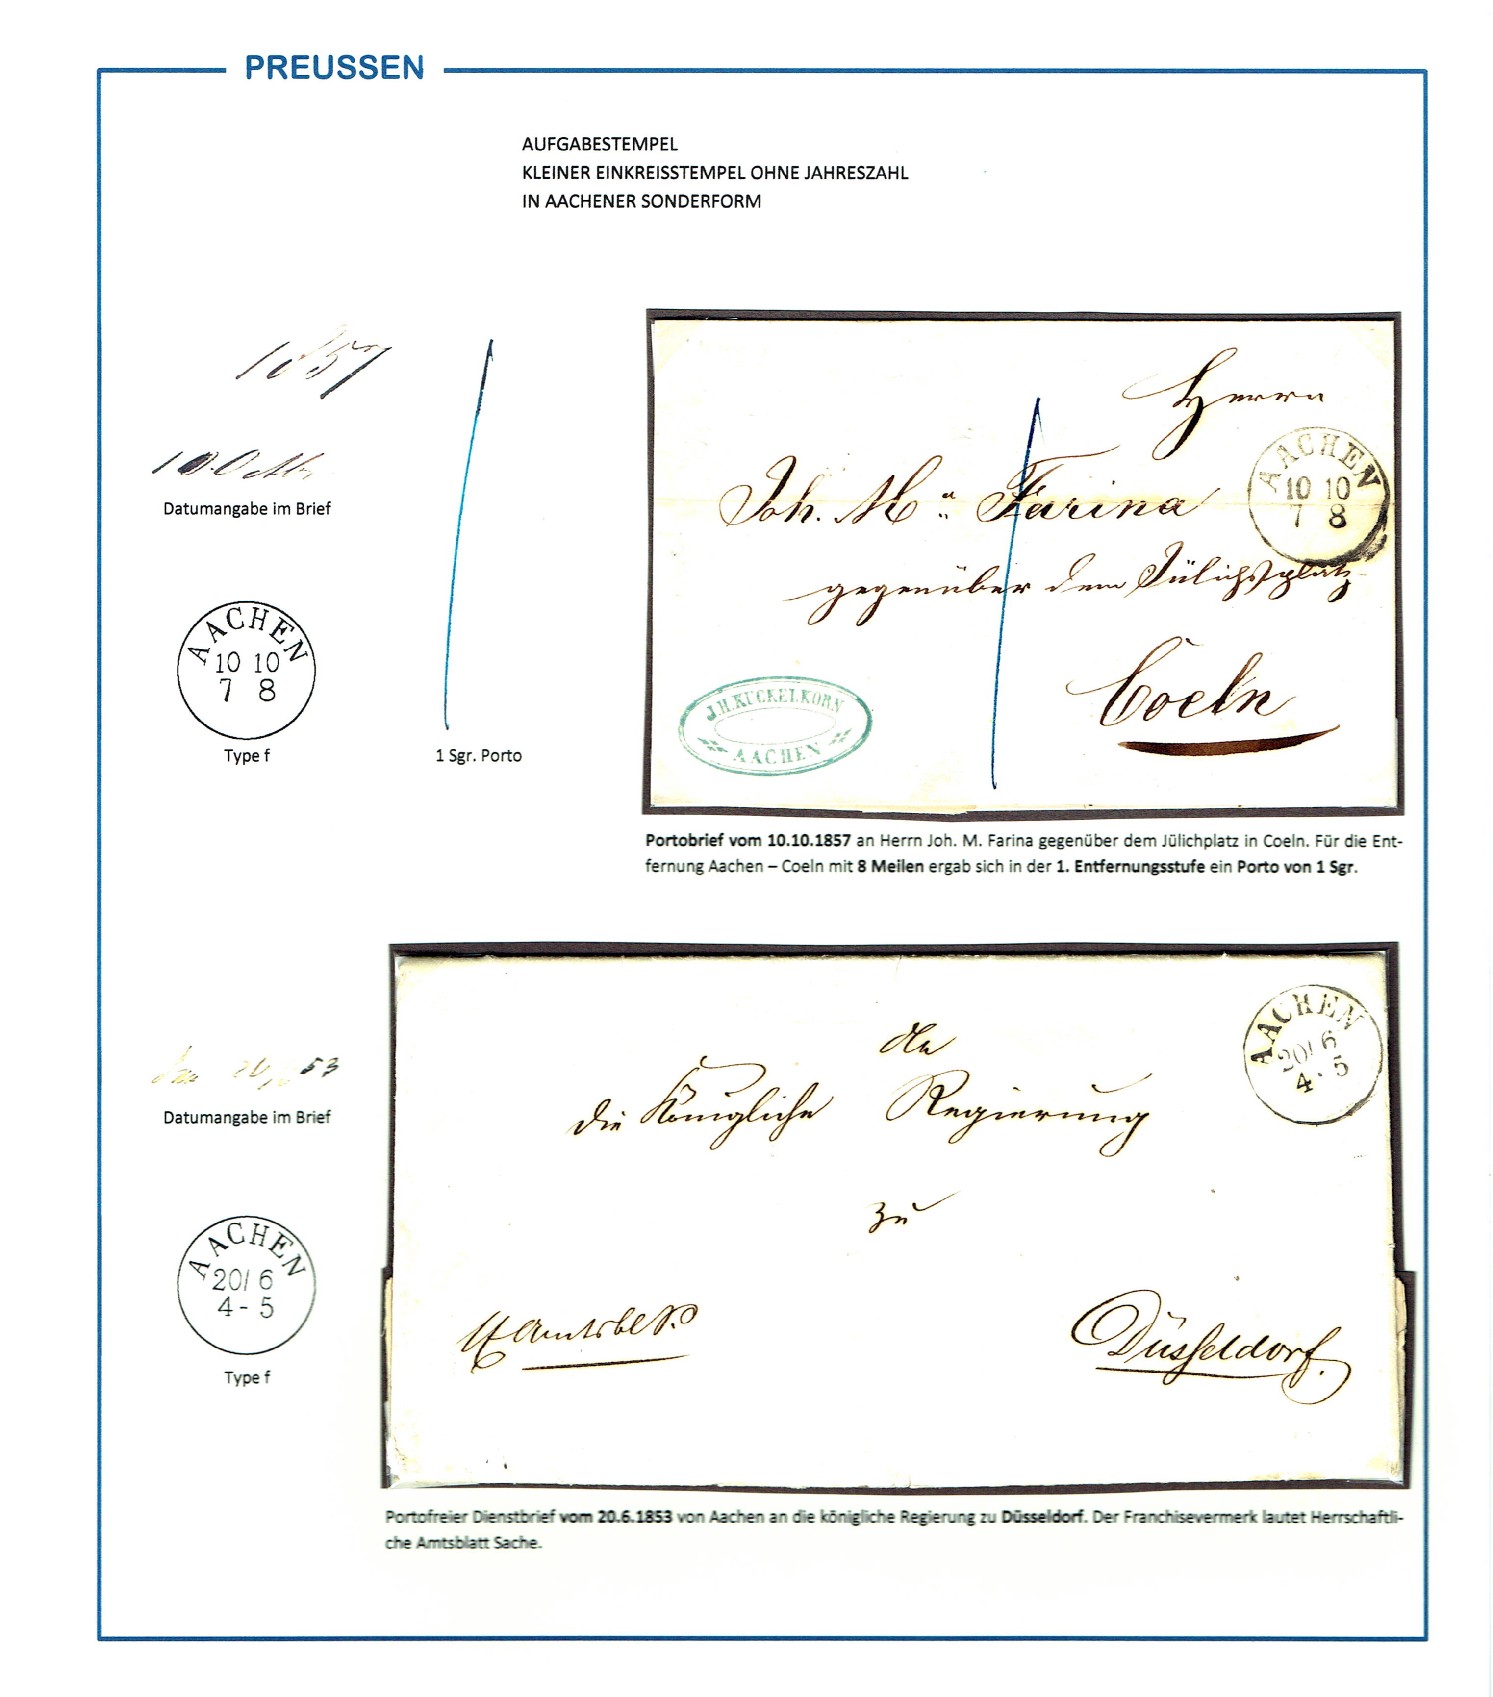 PREUSSEN
AUFGABESTEMPEL
KLEINER EINKREISSTEMPEL OHNE JAHRESZAHL
IN AACHENER SONDERFORM
1857
10 Octbr.
Datumangabe im Brief
AACHEN
10 10
7 8
Type f
1 Sgr. Porto
Herrn
Joh. M. Farina
gegenüber dem Jülichsplatz
Coeln
AACHEN
10 10
7 8
J.H. KUCKELKORN
AACHEN
Portobrief vom 10.10.1857 an Herrn Joh. M. Farina gegenüber dem Jülichplatz in Coeln. Für die Ent-
fernung Aachen – Coeln mit 8 Meilen ergab sich in der 1. Entfernungsstufe ein Porto von 1 Sgr.
53
Datumangabe im Brief
AACHEN
20/ 6
4 - 5
Type f
AACHEN
20/ 6
4 - 5
die Königliche Regierung
zu
Düsseldorf.
Portofreier Dienstbrief vom 20.6.1853 von Aachen an die königliche Regierung zu Düsseldorf. Der Franchisevermerk lautet Herrschaftli-
che Amtsblatt Sache.